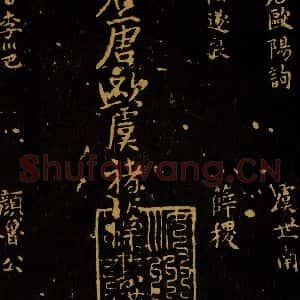 歐陽詢
虞世南
遂良
薛稷
唐歐虞褚薛
李邕
顏魯公
Shufawang.CN